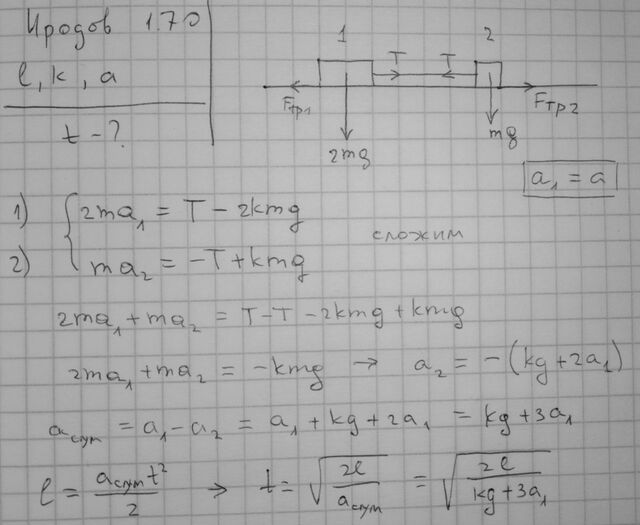 Иродов 1.70
l, k, a
t - ?
1 2
T T
Fтр1 Fтр2
2mg mg
a₁ = a
1) 2ma₁ = T - 2kmg
сложим
2) ma₂ = -T + kmg
2ma₁ + ma₂ = T - T - 2kmg + kmg
2ma₁ + ma₂ = -kmg → a₂ = -(kg + 2a₁)
aсум = a₁ - a₂ = a₁ + kg + 2a₁ = kg + 3a₁
l = aсумt²/2 → t = √(2l/aсум) = √(2l/(kg + 3a₁))